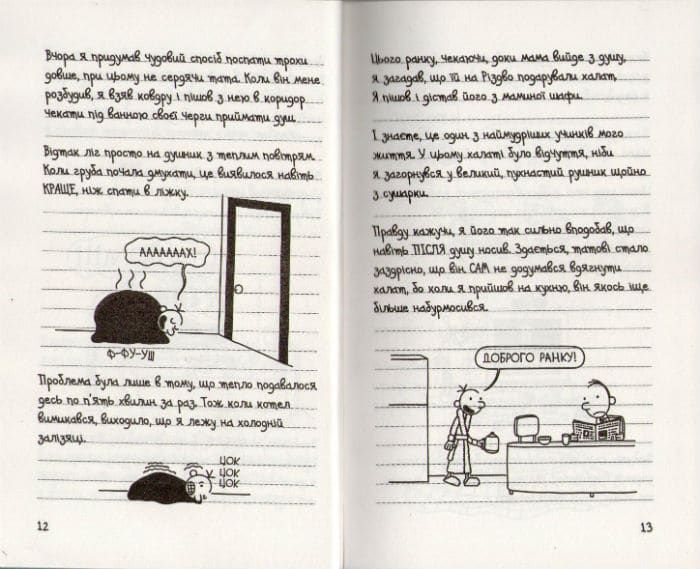 Вчора я придумав чудовий спосіб поспати трохи
довше, при цьому не сердячи тата. Коли він мене
розбудив, я взяв ковдру і пішов з нею в коридор
чекати під ванною своєї черги приймати душ.
Відтак ліг просто на душник з теплим повітрям.
Коли груба почала дмухати, це виявилося навіть
КРАЩЕ, ніж спати в ліжку.
АААААААХ!
Ф-ФУ-УШ
Проблема була лише в тому, що тепло подавалося
десь по п'ять хвилин за раз. Тож коли котел
вимикався, виходило, що я лежу на холодній
залізяці.
ЦОК
ЦОК
ЦОК
12
Цього ранку, чекаючи, доки мама вийде з душу,
я згадав, що їй на Різдво подарували халат.
Я пішов і дістав його з маминої шафи.
І знаєте, це один з наймудріших учинків мого
життя. У цьому халаті було відчуття, ніби
я загорнувся у великий, пухнастий рушник щойно
з сушарки.
Правду кажучи, я його так сильно вподобав, що
навіть ПІСЛЯ душу носив. Здається, татові стало
заздрісно, що він САМ не додумався вдягнути
халат, бо коли я прийшов на кухню, він якось іще
більше набурмосився.
ДОБРОГО РАНКУ!
13